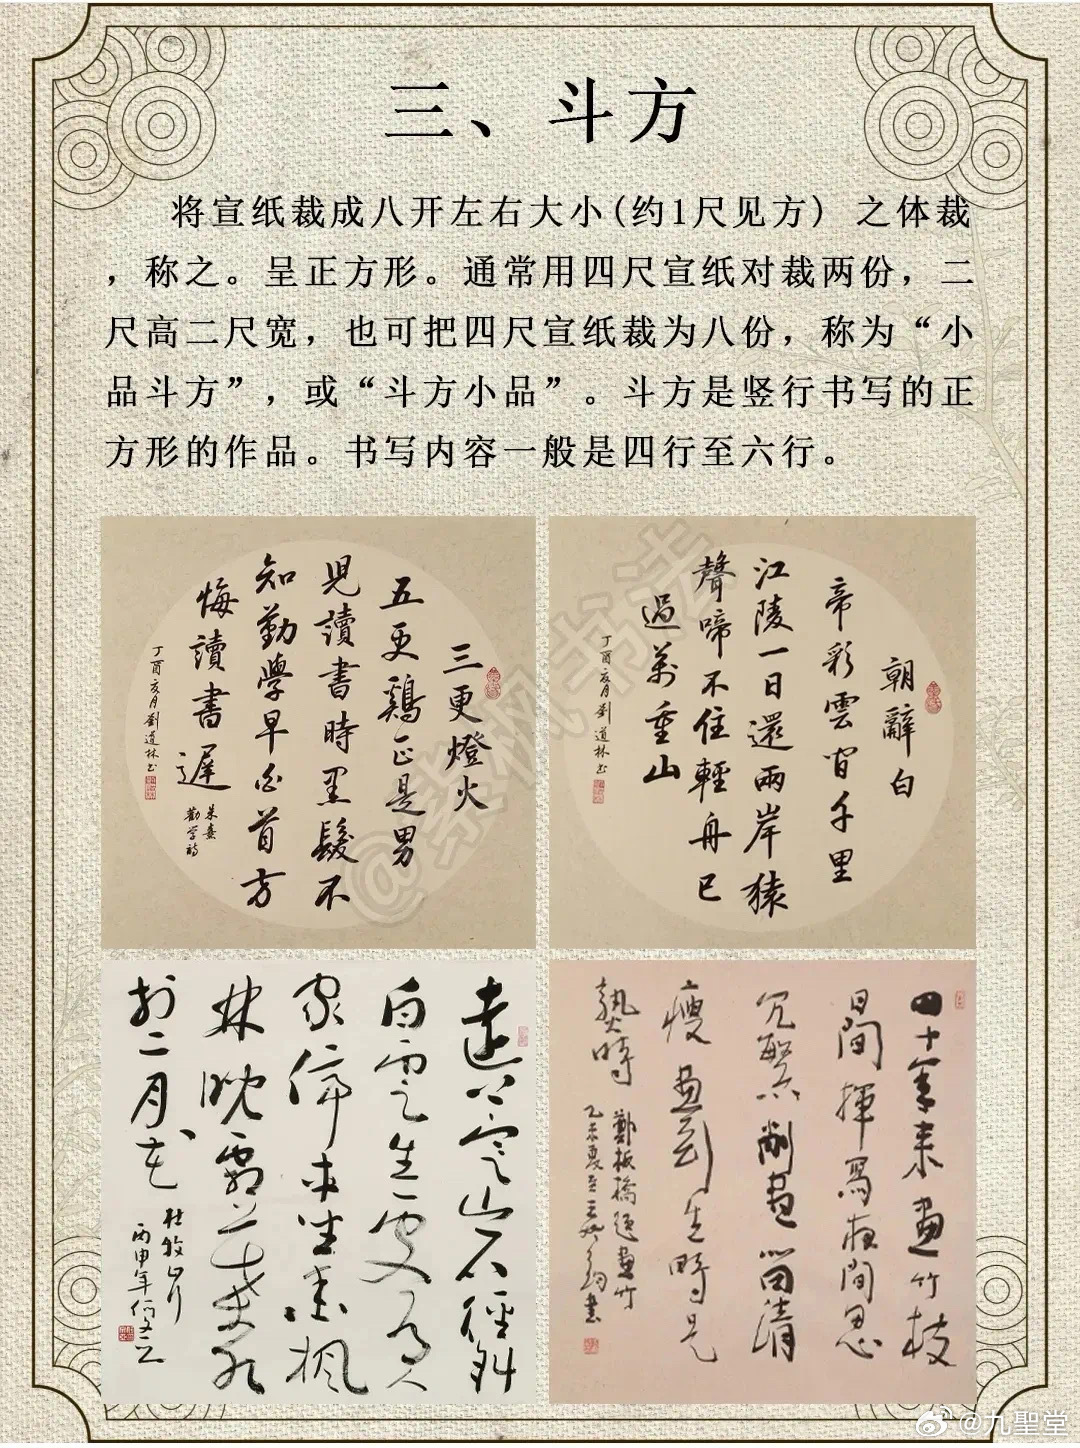 三、斗方
将宣纸裁成八开左右大小(约1尺见方) 之体裁
，称之。呈正方形。通常用四尺宣纸对裁两份，二
尺高二尺宽，也可把四尺宣纸裁为八份，称为“小
品斗方”，或“斗方小品”。斗方是竖行书写的正
方形的作品。书写内容一般是四行至六行。
三更燈火
五更鷄正是男
児讀書時黑髮不
知勤學早白首方
悔讀書遲
朱熹
勸学詩
丁酉亥月劉道林书
朝辭白
帝彩雲间千里
江陵一日還兩岸猿
聲啼不住輕舟已
過万重山
丁酉亥月劉道林书
遠上寒山石徑斜
白雲生處有人
家停車坐愛楓
林晚霜葉红
於二月花
杜牧山行
丙申年
四十年来画竹枝
日間揮寫夜間思
冗繁削盡留清
瘦画到生時是
熟時
鄭板橋題畫竹
乙未夏至
@紫枫书法
@九聖堂